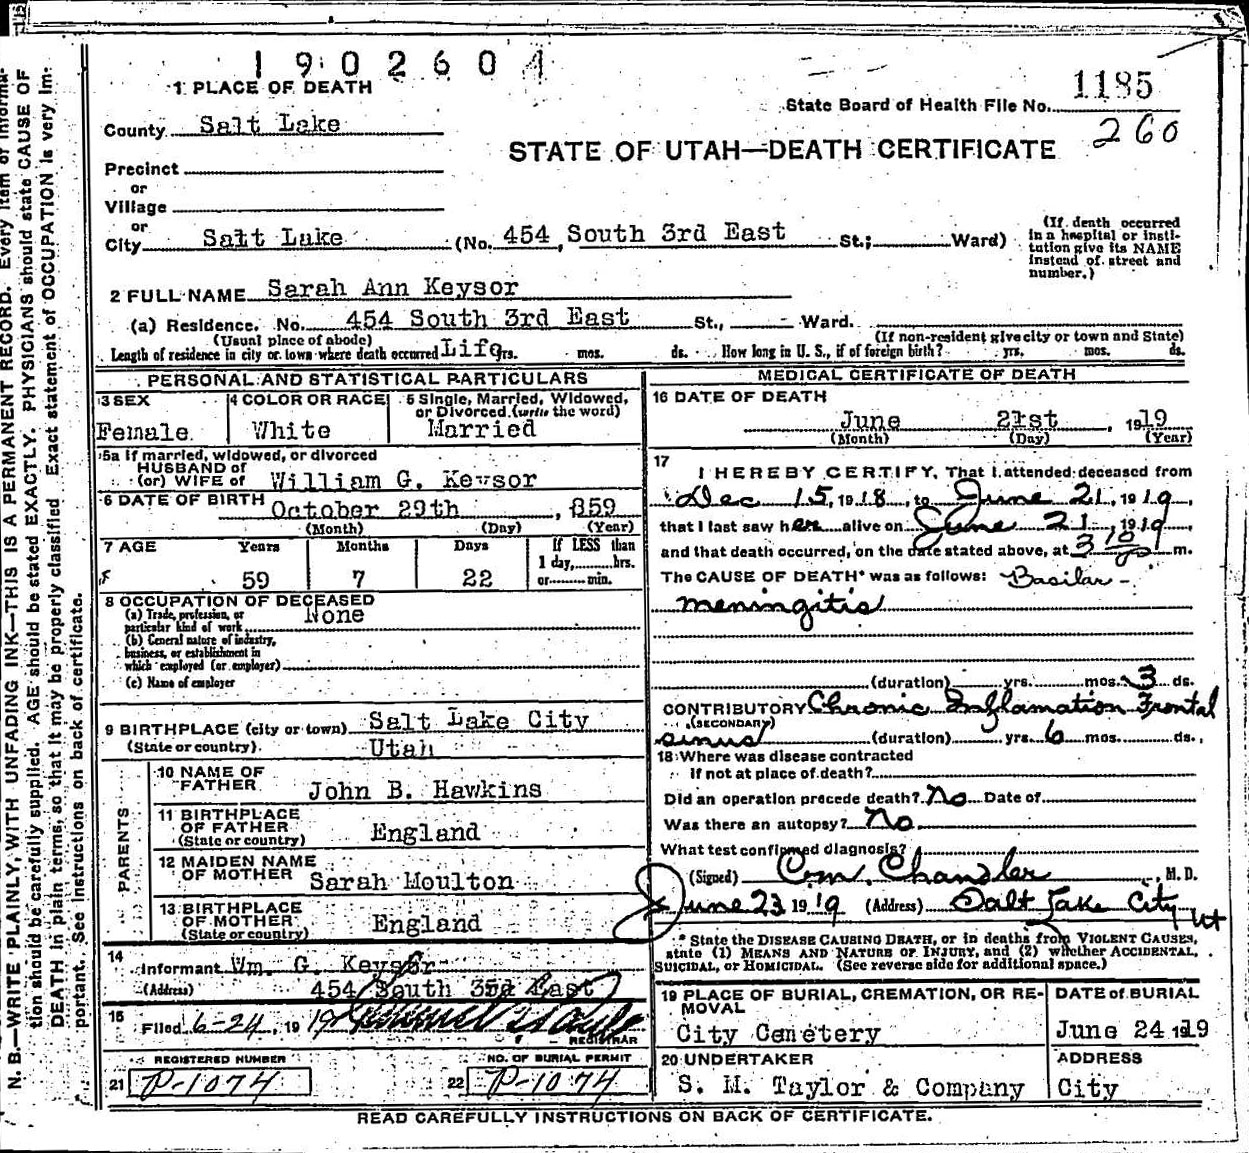 1902604
1 PLACE OF DEATH
State Board of Health File No. 1185
260
County Salt Lake
STATE OF UTAH—DEATH CERTIFICATE
Precinct
or
Village
or
City Salt Lake (No. 454, South 3rd East St.; Ward)
(If death occurred in a hospital or insti-
tution give its NAME
instead of street and
number.)
2 FULL NAME Sarah Ann Keysor
(a) Residence. No. 454 South 3rd East St., Ward.
(Usual place of abode) (If non-resident give city or town and State)
Length of residence in city or town where death occurred Life yrs. mos. ds. How long in U. S., if of foreign birth? yrs. mos. ds.
PERSONAL AND STATISTICAL PARTICULARS
3 SEX
Female
4 COLOR OR RACE
White
5 Single, Married, Widowed,
or Divorced. (write the word)
Married
5a If married, widowed, or divorced
HUSBAND of
(or) WIFE of William G. Keysor
6 DATE OF BIRTH October 29th, 1859
(Month) (Day) (Year)
7 AGE Years Months Days If LESS than
1 day, hrs.
or min.
59 7 22
8 OCCUPATION OF DECEASED
(a) Trade, profession, or
particular kind of work None
(b) General nature of industry,
business, or establishment in
which employed (or employer)
(c) Name of employer
9 BIRTHPLACE (city or town) Salt Lake City
(State or country) Utah
PARENTS
10 NAME OF
FATHER John B. Hawkins
11 BIRTHPLACE
OF FATHER England
(State or country)
12 MAIDEN NAME
OF MOTHER Sarah Moulton
13 BIRTHPLACE
OF MOTHER England
(State or country)
14
Informant Wm. G. Keysor
(Address) 454 South 3rd East
15
Filed 6-24, 1919
REGISTRAR
REGISTERED NUMBER
21 P-1074
NO. OF BURIAL PERMIT
22 P-1074
MEDICAL CERTIFICATE OF DEATH
16 DATE OF DEATH
June 21st, 1919
(Month) (Day) (Year)
17
I HEREBY CERTIFY, That I attended deceased from
Dec 15, 1918, to June 21, 1919,
that I last saw her alive on June 21, 1919,
and that death occurred, on the date stated above, at 3 10 m.
The CAUSE OF DEATH* was as follows: Basilar-
meningitis
(duration) yrs. mos. 3 ds.
CONTRIBUTORY Chronic Inflamation Frontal
(SECONDARY)
sinus (duration) yrs. 6 mos. ds.
18 Where was disease contracted
if not at place of death?
Did an operation precede death? No Date of
Was there an autopsy? No
What test confirmed diagnosis?
(Signed) C.M. Chandler, M. D.
June 23 1919 (Address) Salt Lake City Ut
* State the DISEASE CAUSING DEATH, or in deaths from VIOLENT CAUSES,
state (1) MEANS AND NATURE OF INJURY, and (2) whether ACCIDENTAL,
SUICIDAL, or HOMICIDAL. (See reverse side for additional space.)
19 PLACE OF BURIAL, CREMATION, OR RE-
MOVAL
City Cemetery
DATE of BURIAL
June 24 1919
20 UNDERTAKER
S. M. Taylor & Company
ADDRESS
City
READ CAREFULLY INSTRUCTIONS ON BACK OF CERTIFICATE.
N. B.—WRITE PLAINLY, WITH UNFADING INK—THIS IS A PERMANENT RECORD. Every item of informa-
tion should be carefully supplied. AGE should be stated EXACTLY. PHYSICIANS should state CAUSE OF
DEATH in plain terms, so that it may be properly classified. Exact statement of OCCUPATION is very im-
portant. See instructions on back of certificate.